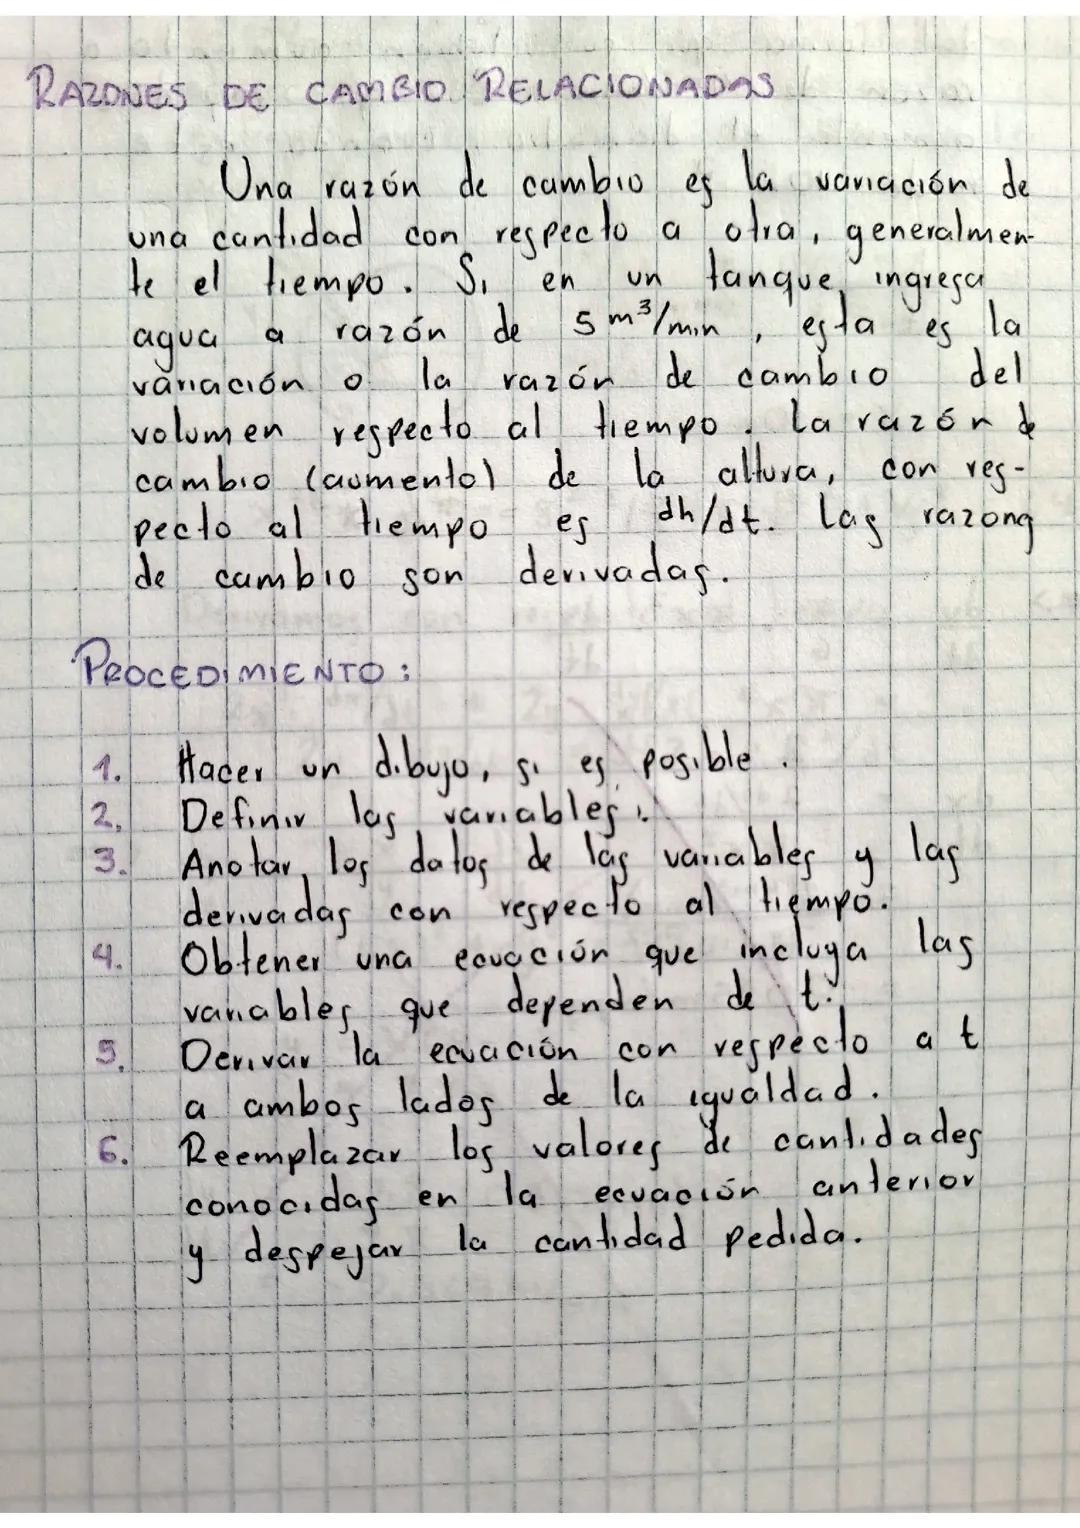 RAZONES DE CAMBIO RELACIONADAS
Una razón de cambio es la variación de
una cantidad con respecto a otra, generalmen-
te el tiempo. Si en un tanque ingresa
agua a razón de 5 m³/min, esta es la
variación o la razón de cambio del
volumen respecto al tiempo. La razón de
cambio (aumento) de la altura, con res-
pecto al tiempo es dh/dt. Las razones
de cambio son derivadas.
PROCEDIMIENTO:
1. Hacer un dibujo, si es posible.
2. Definir las variables.
3. Anotar los datos de las variables y las
derivadas con respecto al tiempo.
4. Obtener una ecuación que incluya las
variables que dependen de t.
5. Derivar la ecuación con respecto a t
a ambos lados de la igualdad.
6. Reemplazar los valores de cantidades
conocidas en la ecuación anterior
y despejar la cantidad pedida.